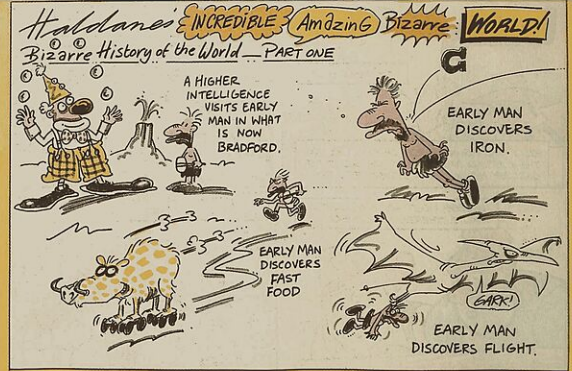 Haldane's INCREDIBLE AmaZinG Bizarre WORLD!
Bizarre History of the World — PART ONE
A HIGHER
INTELLIGENCE
VISITS EARLY
MAN IN WHAT
IS NOW
BRADFORD.
EARLY MAN
DISCOVERS
IRON.
EARLY MAN
DISCOVERS
FAST
FOOD
GARK!
EARLY MAN
DISCOVERS FLIGHT.